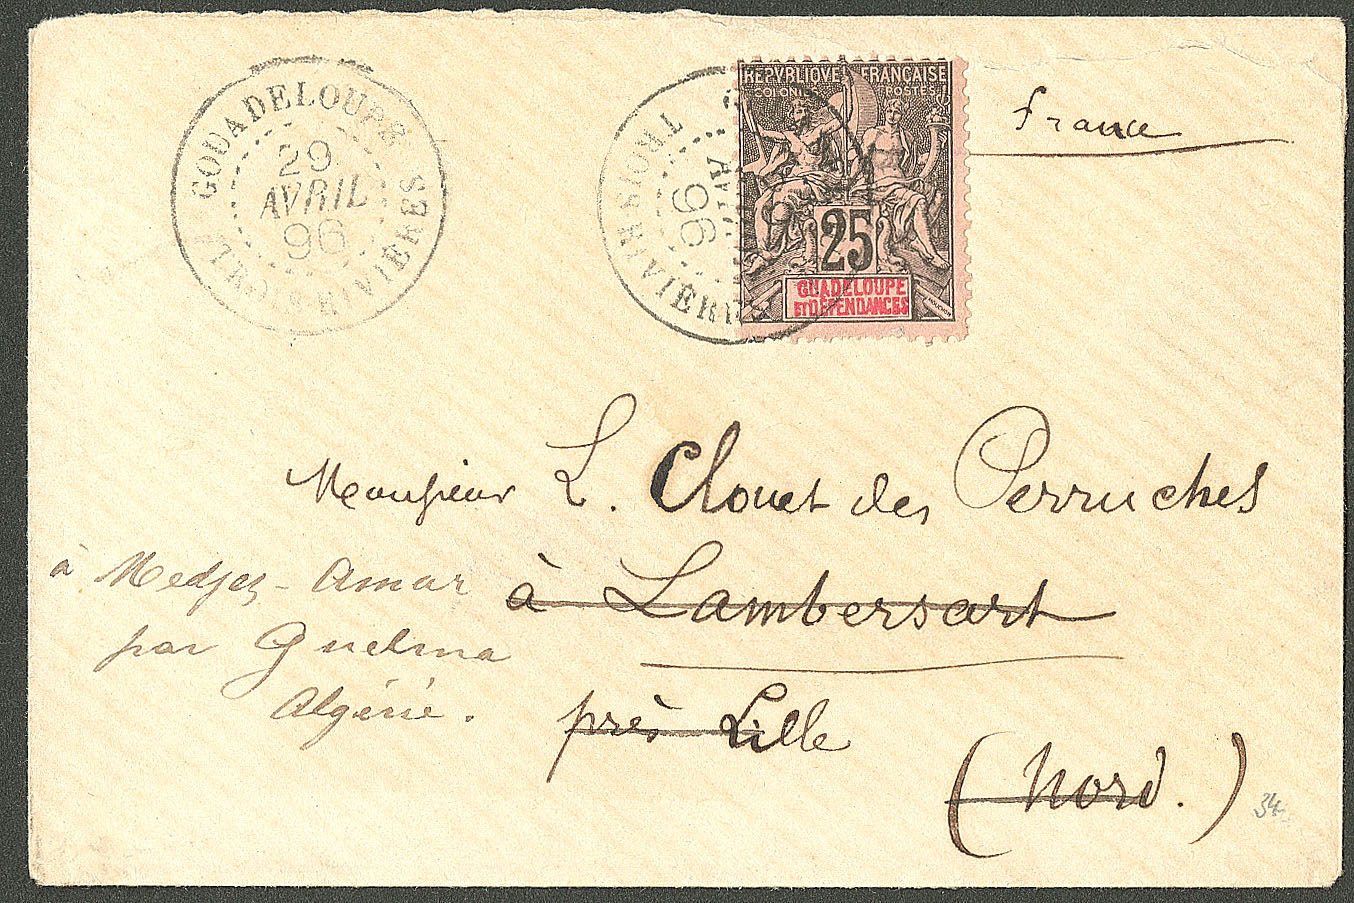 GOUADELOUPE
29
AVRIL
96
TROIS-RIVIÈRES
TROIS-RIVIÈRES
AVRIL
96
REPVBLIQVE FRANÇAISE
COLONIES POSTES
25
GUADELOUPE
ET DÉPENDANCES
MOUCHON
France
Monsieur L. Clouet des Perruches
à Lambersart
près Lille
(Nord.)
à Medjez-Amar
par Guelma
Algérie.
34